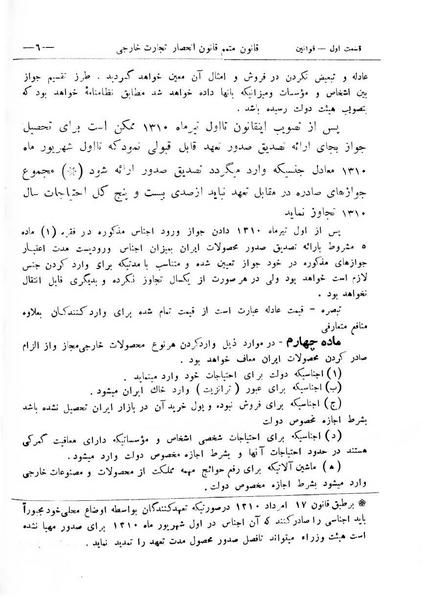 قسمت اول — قوانین
قانون متمم قانون انحصار تجارت خارجی
—٦—
عادله و تبعیض نکردن در فروش و امثال آن معین خواهد گردید. طرز تقسیم جواز
بین اشخاص و مؤسسات ومیزانیکه بآنها داده خواهد شد مطابق نظامنامهٔ خواهد بود که
بتصویب هیئت دولت رسیده باشد.
پس از تصویب اینقانون تااول تیرماه ١٣١٠ ممکن است برای تحصیل
جواز بجای ارائه تصدیق صدور تعهد قابل قبولی نمودکه تااول شهریور ماه
١٣١٠ معادل جنسیکه وارد میگردد تصدیق صدور ارائه شود (※) مجموع
جوازهای صادره در مقابل تعهد نباید ازصدی بیست و پنج کل احتیاجات سال
١٣١٠ تجاوز نماید
پس از اول تیرماه ١٣١٠ دادن جواز ورود اجناس مذکوره در فقره (١) ماده
٥ مشروط بارائه تصدیق صدور محصولات ایران بمیزان اجناس ورودیست مدت اعتبار
جوازهای مذکوره در خود جواز تعیین شده و متناسب با مدتیکه برای وارد کردن جنس
لازم است خواهد بود ولی در هرصورت از یکسال تجاوز نکرده و بدیگری قابل انتقال
نخواهد بود.
تبصره – قیمت عادله عبارت است از قیمت تمام شده برای وارد کنندگان بعلاوه
منافع متعارفی
ماده چهارم – در موارد ذیل واردکردن هرنوع محصولات خارجی مجاز واز الزام
صادر کردن محصولات ایران معاف خواهد بود.
(١) اجناسیکه دولت برای احتیاجات خود وارد مینماید.
(ب) اجناسیکه برای عبور (ترانزیت) وارد خاك ایران میشود.
(ج) اجناسیکه برای فروش نبوده وپول خرید آن در بازار ایران تحصیل نشده باشد
بشرط اجازه مخصوص دولت
(د) اجناسیکه برای احتیاجات شخصی اشخاص و مؤسساتیکه دارای معافیت گمرکی
هستند در حدود احتیاجات آنها و بشرط اجازه مخصوص دولت وارد میشود.
(ه) ماشین آلاتیکه برای رفع حوائج مهمه مملکت از محصولات و مصنوعات خارجی
وارد میشود بشرط اجازه مخصوص دولت.
※ برطبق قانون ١٧ امرداد ١٣١٠ درصورتیکه تعهدکنندگان بواسطه اوضاع محلی خود مجبوراً
باید اجناسی را صادرکنند که آن اجناس در اول شهریور ماه ١٣١٠ برای صدور مهیا نشده
است هیئت وزراء میتواند تافصل صدور محصول مدت تعهد را تمدید نماید.